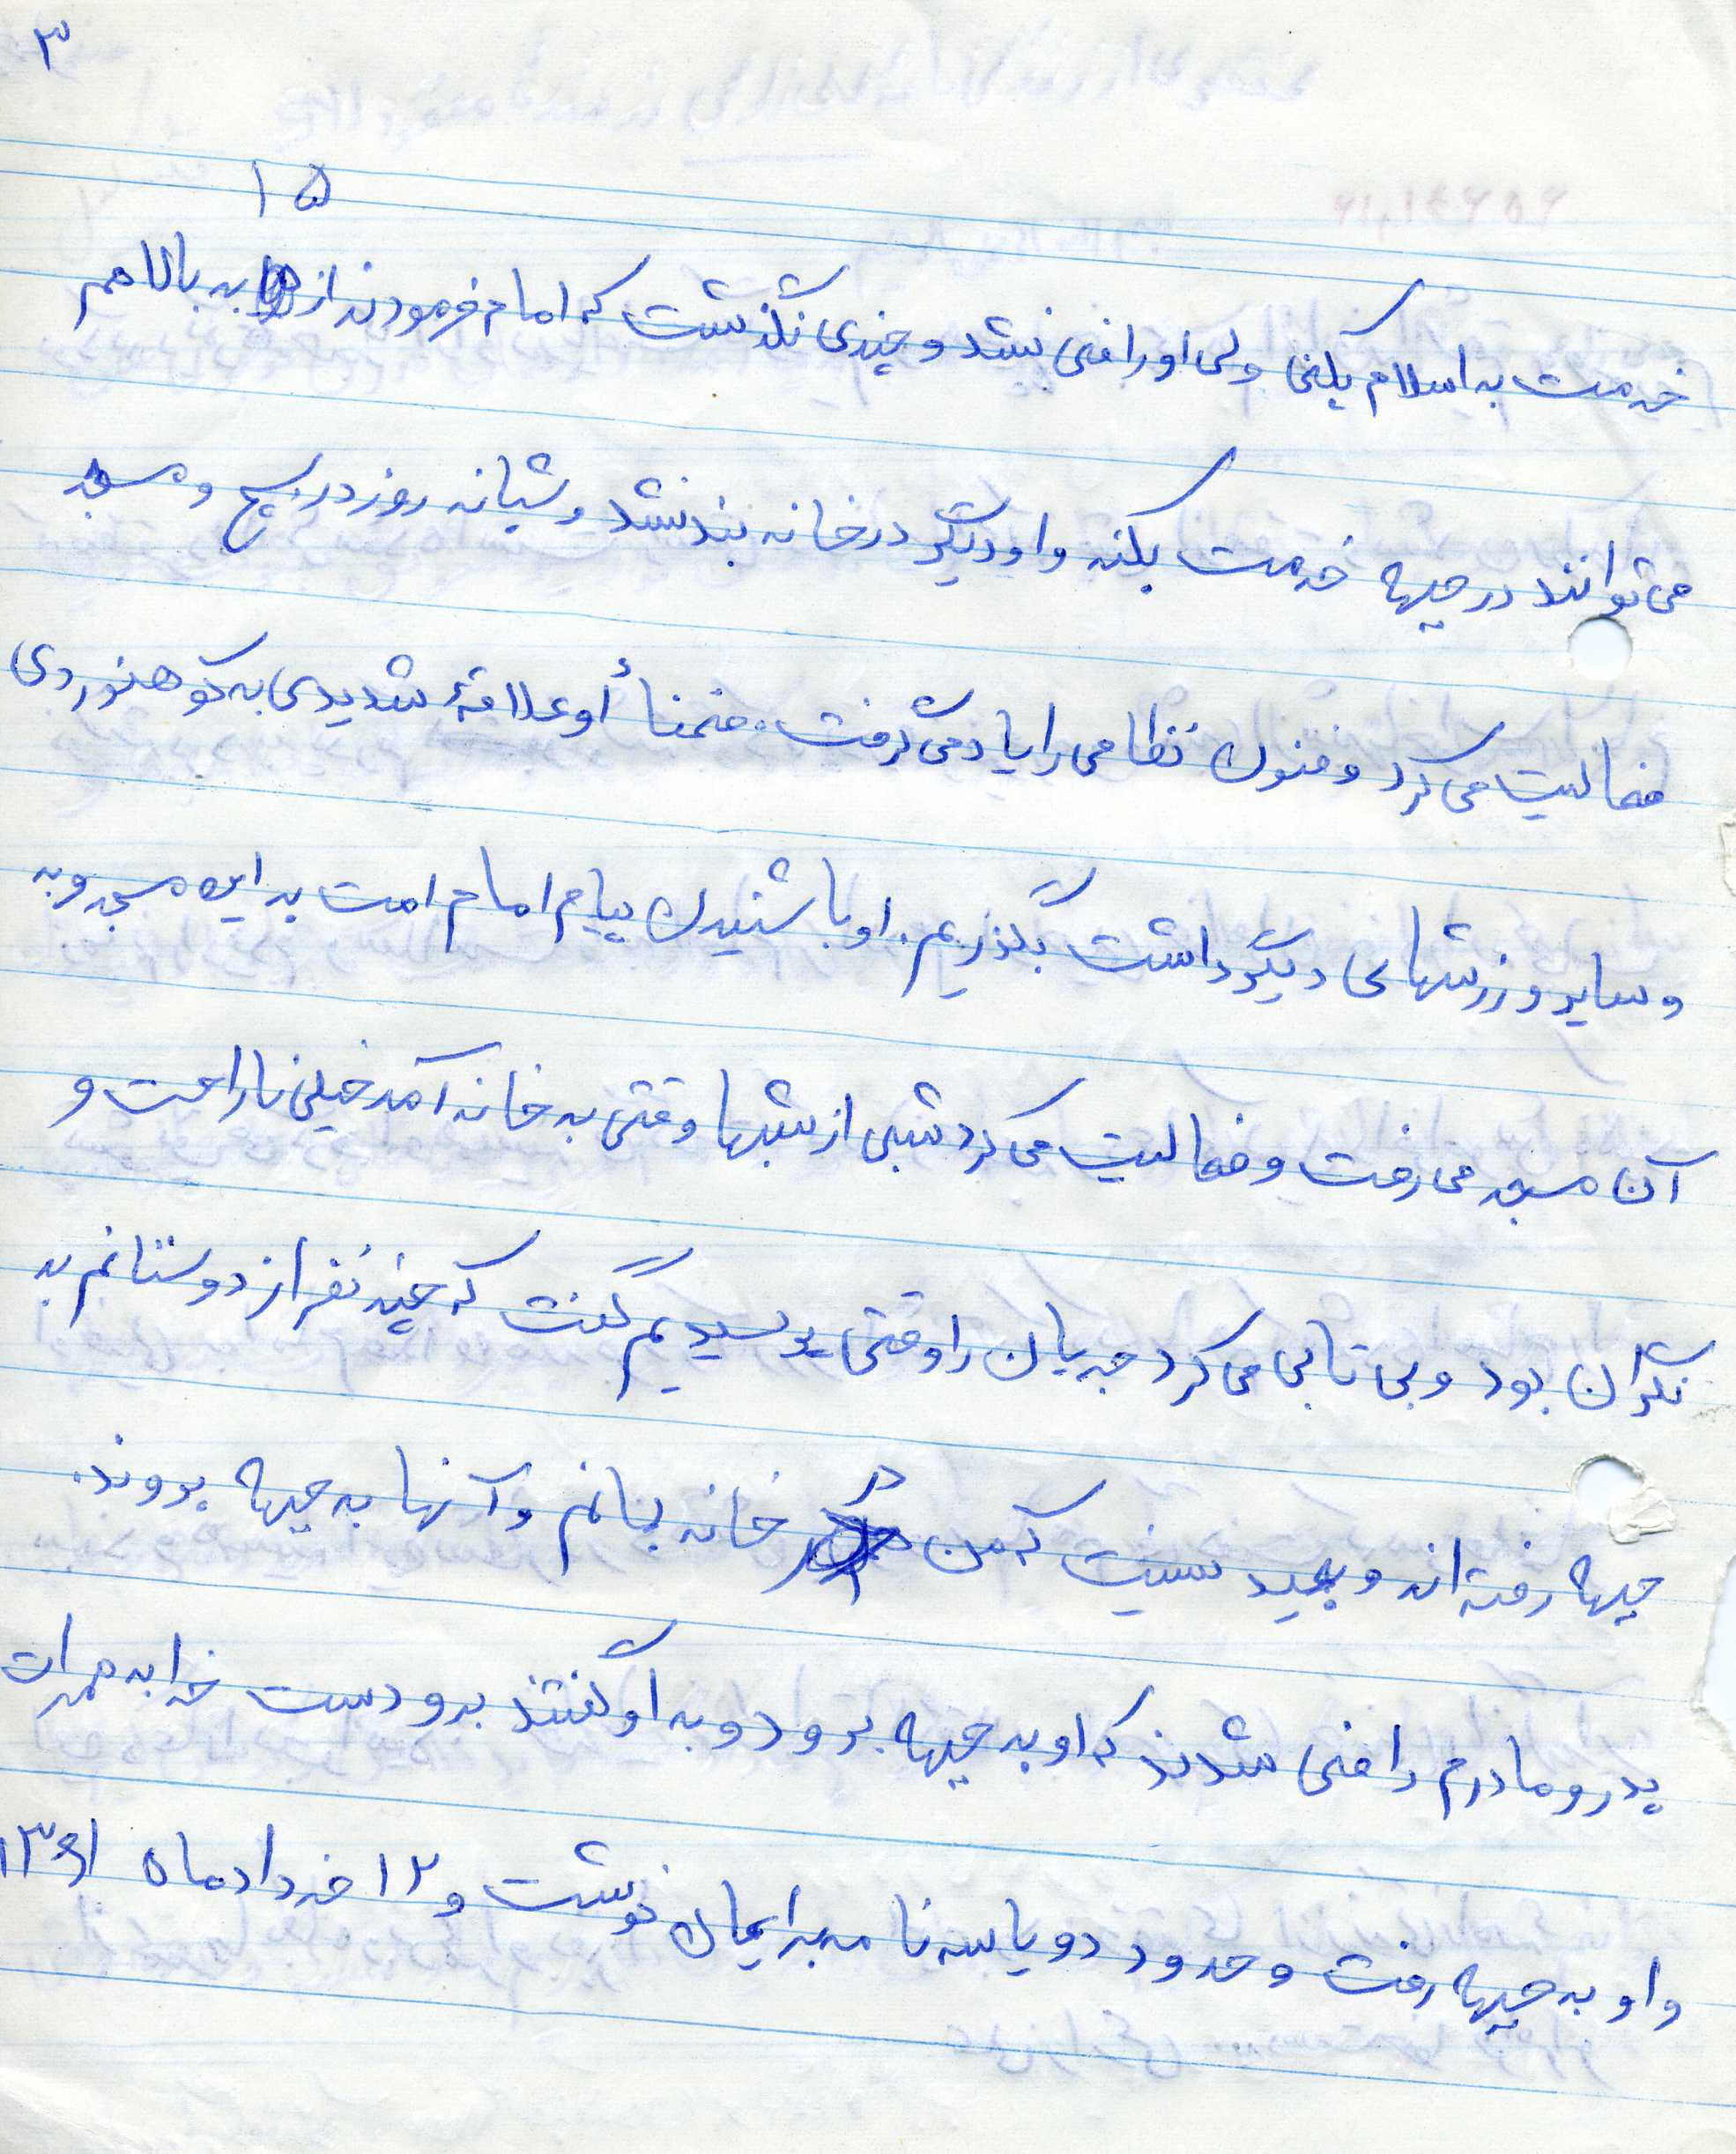 ۳
۱۵
خدمت به اسلام بکنی ولی او راضی نشد و چندی نگذشت که امام فرمودند از به بالا هم
می توانند در جبهه خدمت بکنه و او دیگر در خانه بند نشد و شبانه روز در بسیج و مسجد
فعالیت می کرد و فنون نظامی را یاد می گرفت. ضمناً او علاقهٔ شدیدی به کوهنوردی
و سایر ورزشهای دیگر داشت بگذریم. او با شنیدن پیام امام امت به این مسجد و به
آن مسجد می رفت و فعالیت می کرد شبی از شبها وقتی به خانه آمد خیلی ناراحت و
نگران بود و بی تابی می کرد جریان را وقتی پرسیدیم گفت که چند نفر از دوستانم به
جبهه رفته اند و بعید نسیت که من در خانه بمانم و آنها به جبهه بروند.
پدر و مادرم راضی شدند که او به جبهه برود و به او گفتند برو دست خدا به همرات
و او به جبهه رفت و حدود دو یا سه نامه برایمان نوشت و ۱۲ خردادماه ۱۳۶۱